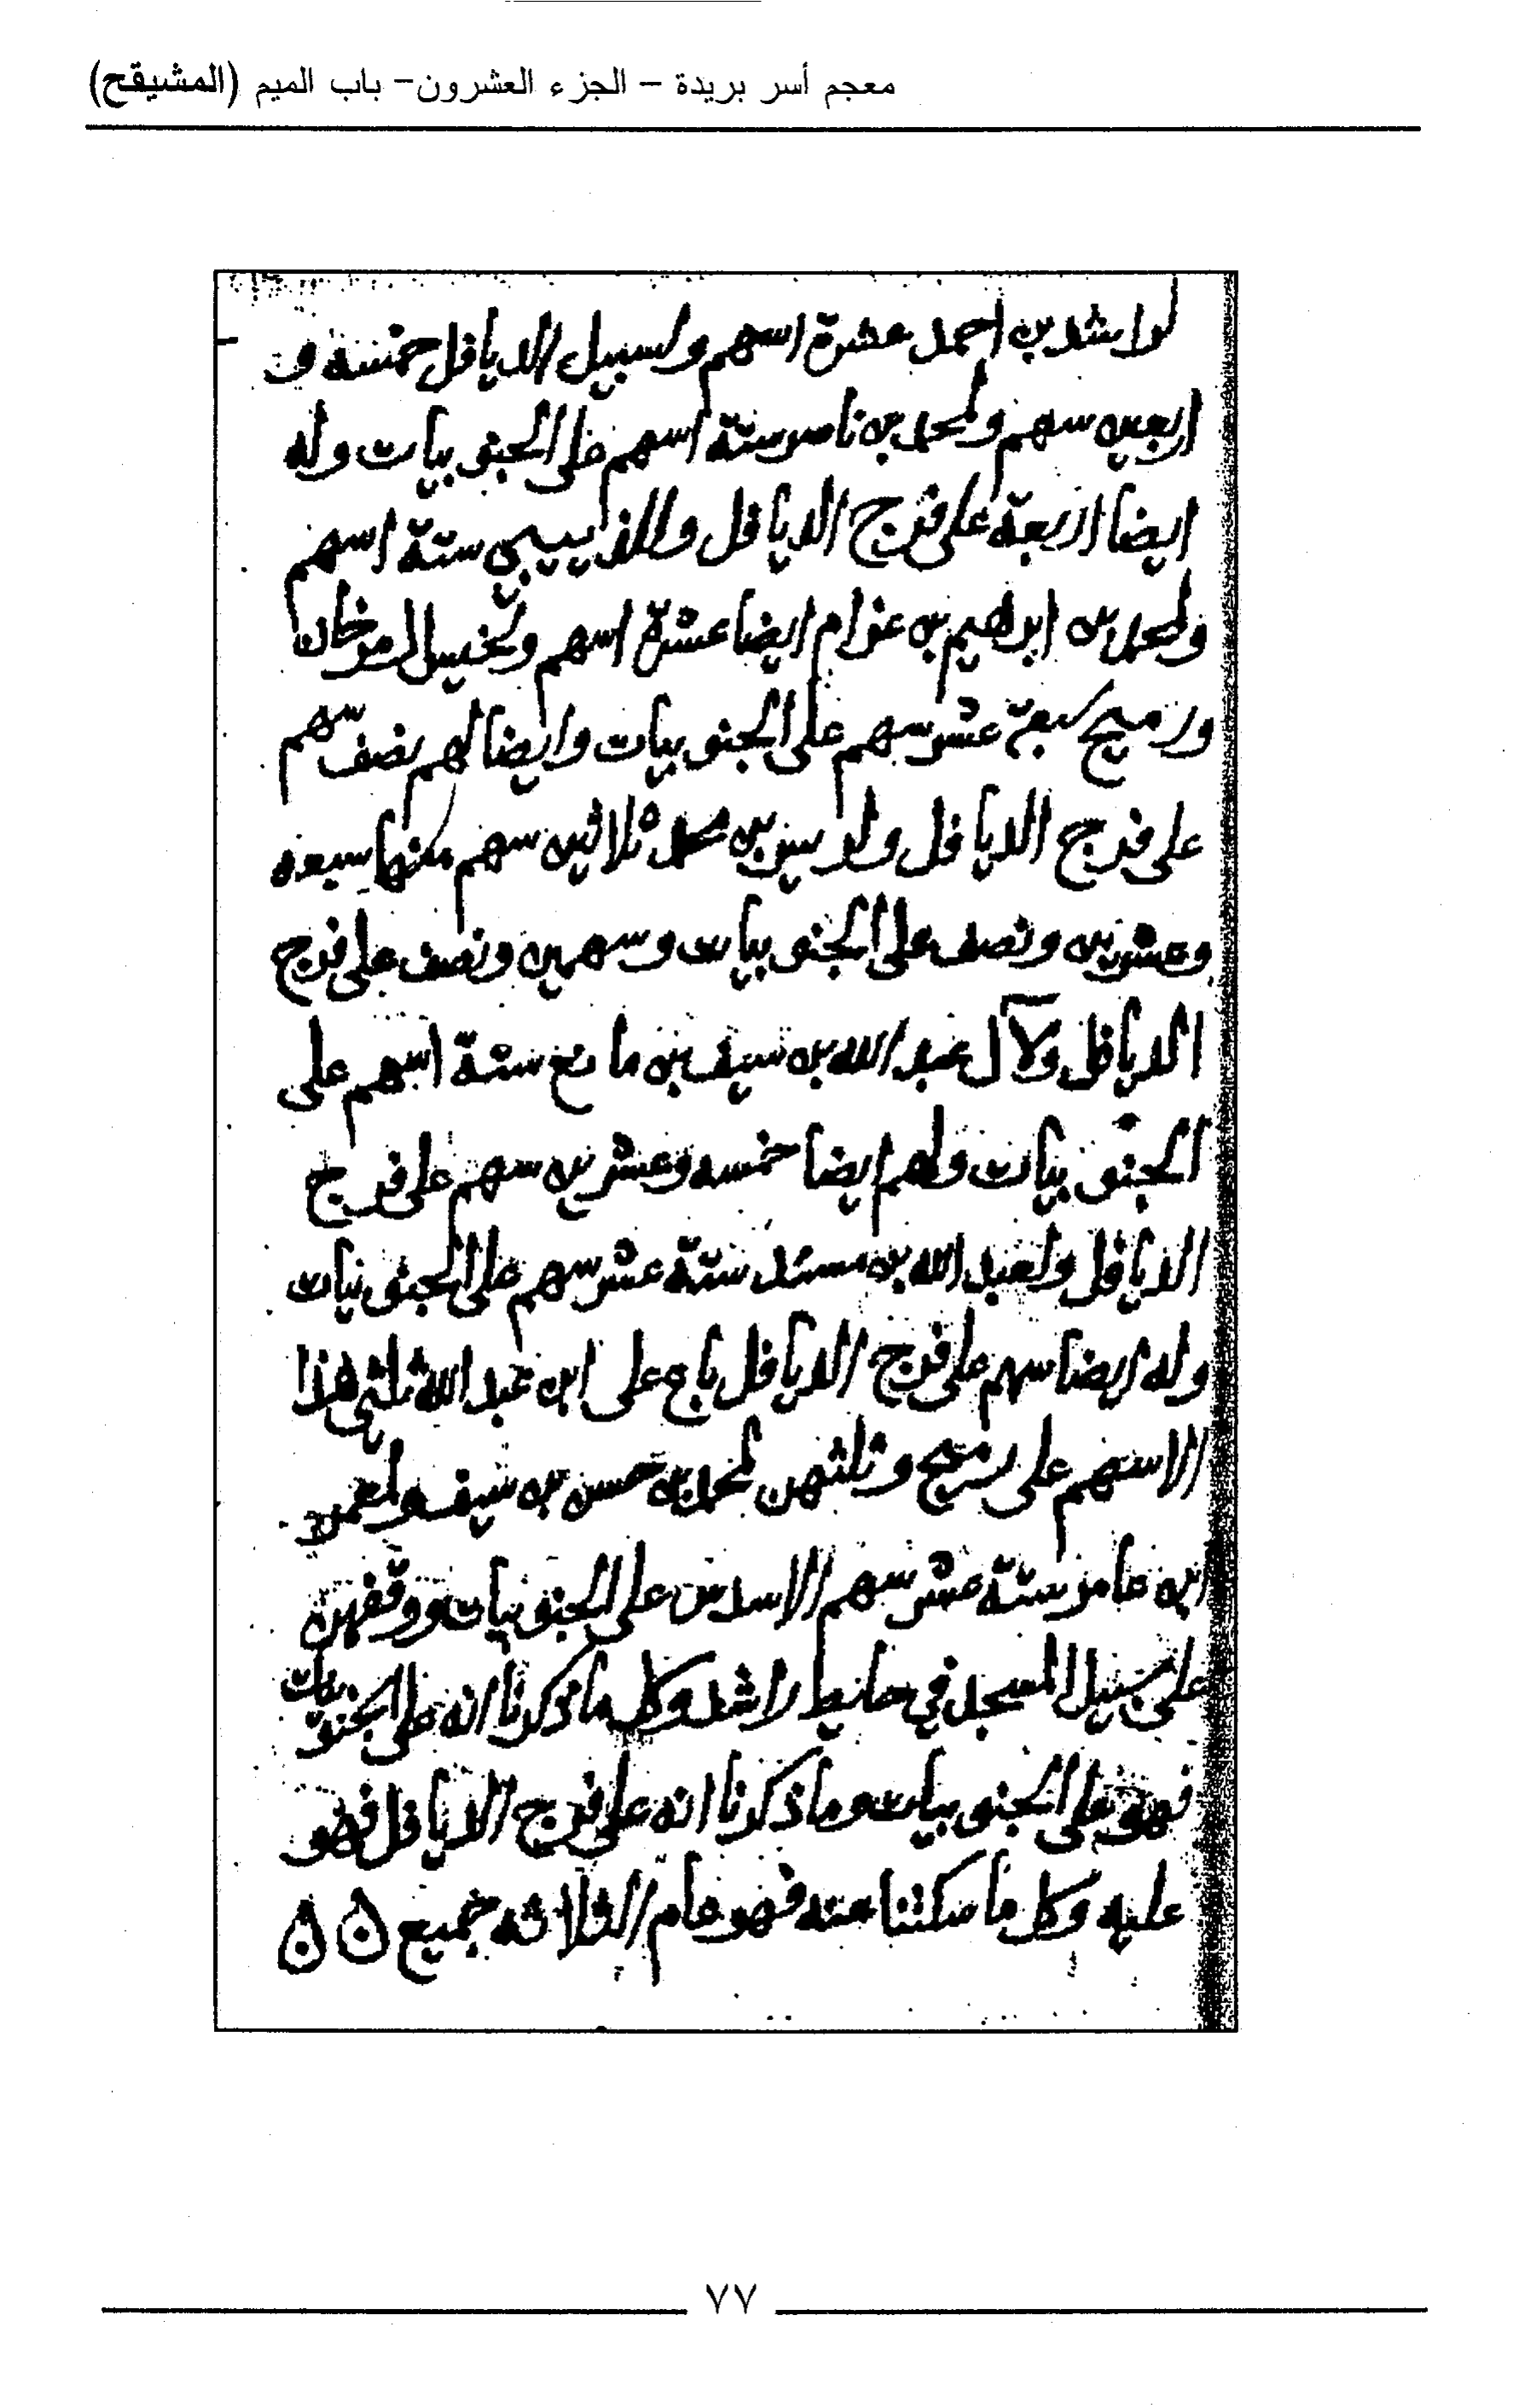 معجم أسر بريدة – الجزء العشرون– باب الميم (المشيقح)
لراشد بن احمد عشرة اسهم ولسبيل الديا قل خمسه و
اربعين سهم ولمحمد بن ناصر ستة اسهم على الجنو بيات وله
ايضا اربعة على فرج الديا قل وللذ ييبي ستة اسهم
ولمحمد بن ابرهيم بن عزام ايضا عشرة اسهم ولخنيس
ورميح سبعة عشر سهم على الجنو بيات وايضا لهم نصف سهم
على فرج الديا قل ثلاثين سهم منها سبعه
وعشرين ونصف على الجنو بيات وسهمين ونصف على فرج
الديا قل ولآل عبد الله بن سيف بن مانع ستة اسهم على
الجنو بيات ولهم ايضا خمسه وعشرين سهم على فرج
الديا قل ولعبد الله بن مسند ستة عشر سهم على الجنو بيات
وله ايضا سهم على فرج الديا قل باع على ابن عبد الله ثلثي هذا
الاسهم على رميح وثلثهن لمحمد بن حسن بن سيف ولعمر
ابن عامر ستة عشر سهم الا سدس على الجنو بيات ووقفهن
على سبيل المسجد في حايط راشد وكل ما ذكرنا انه على الجنو بيات
فهو على الجنو بيات وما ذكرنا انه على فرج الديا قل فهو
عليه وكل ما سكتنا عنه فهو عام الثلاثه جميع ه ه
٧٧